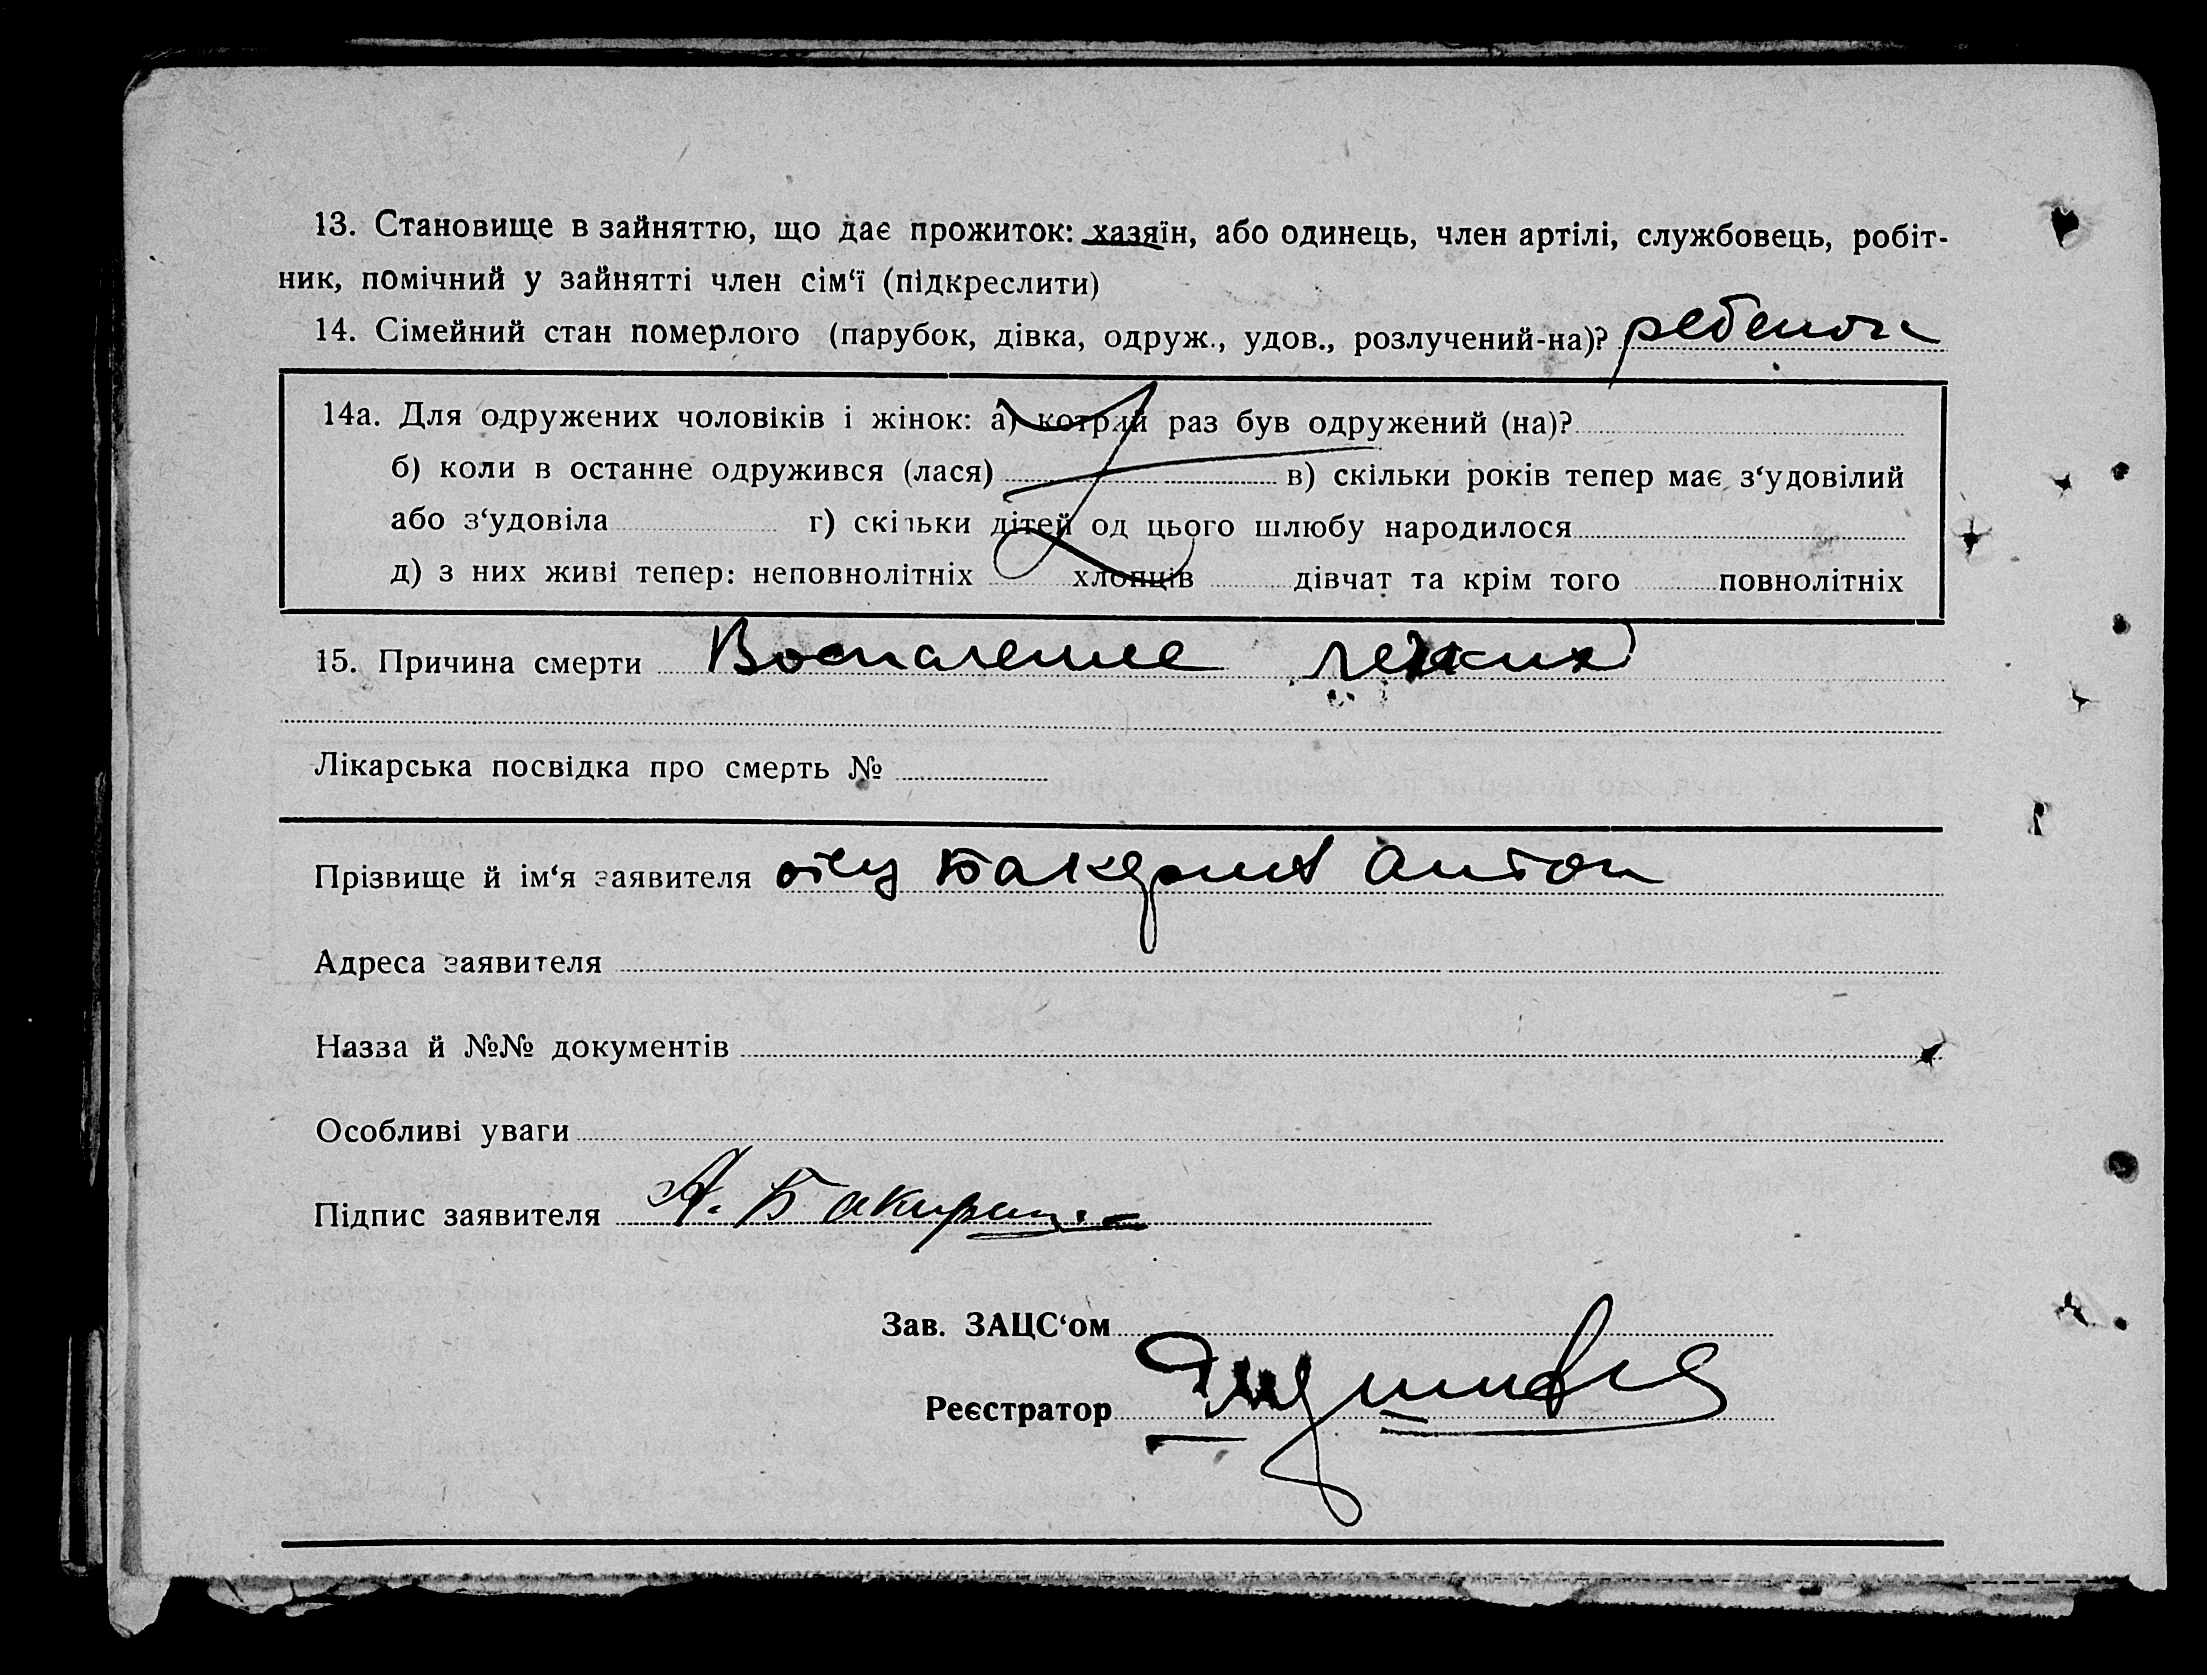 13. Становище в зайняттю, що дає прожиток: хазяїн, або одинець, член артілі, службовець, робіт-
ник, помічний у зайнятті член сім‘ї (підкреслити)
14. Сімейний стан померлого (парубок, дівка, одруж., удов., розлучений-на)? ребенок
14а. Для одружених чоловіків і жінок: а) котрий раз був одружений (на)?
б) коли в останне одружився (лася) в) скільки років тепер має з‘удовілий
або з‘удовіла г) скільки дітей од цього шлюбу народилося
д) з них живі тепер: неповнолітніх хлопців дівчат та крім того повнолітніх
15. Причина смерти Воспаление легких
Лікарська посвідка про смерть №
Прізвище й ім‘я заявителя отец Антон
Адреса заявителя
Назва й №№ документів
Особливі уваги
Підпис заявителя А.
Зав. ЗАЦС‘ом
Реєстратор